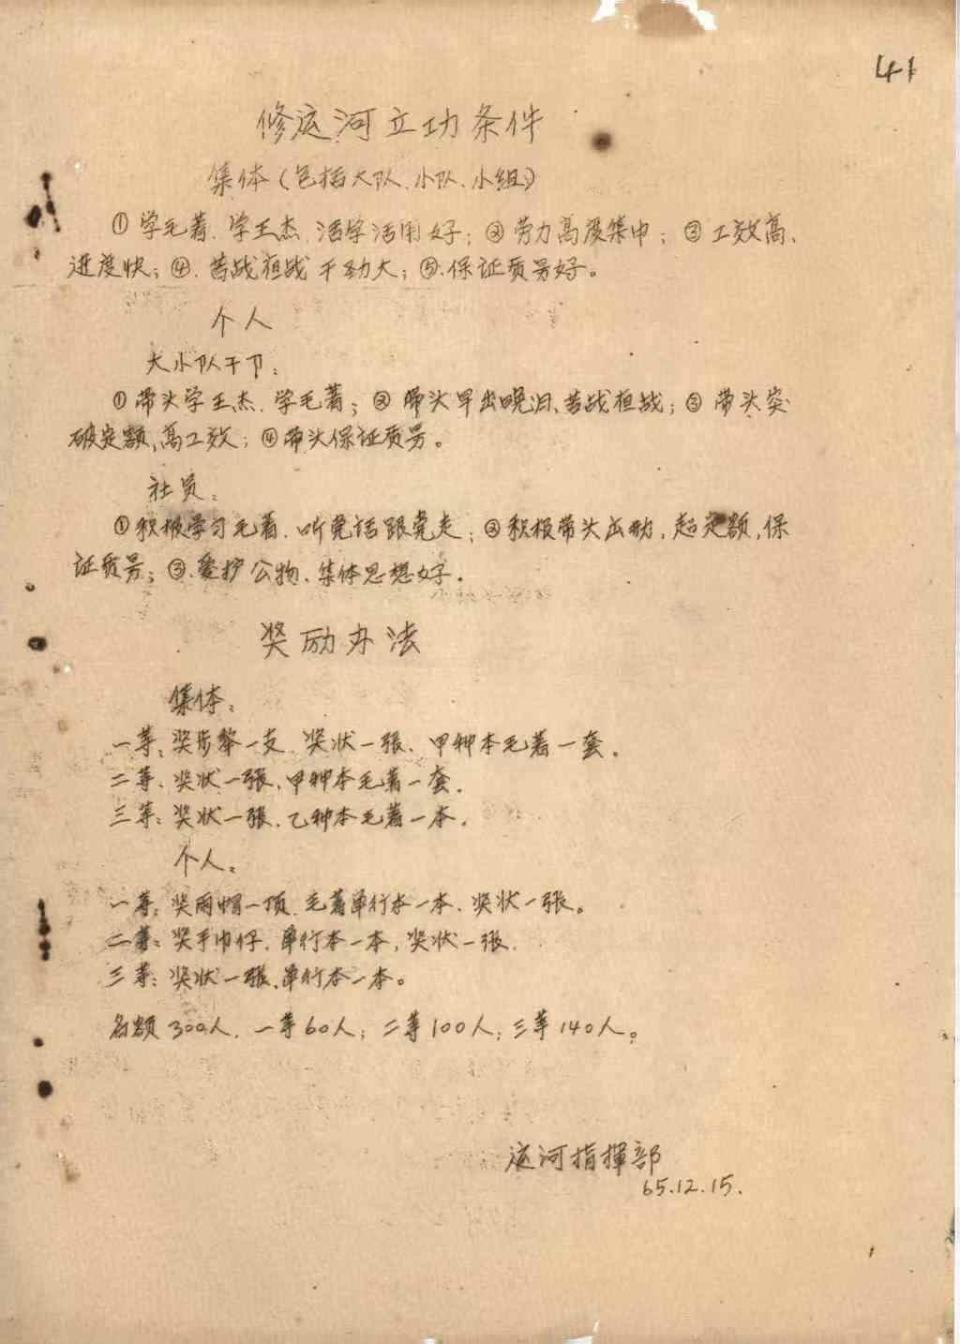 41
修运河立功条件
集体（包括大队、小队、小组）
①学毛著、学王杰、活学活用好；②劳力高度集中；③工效高、
进度快；④、苦战夜战干劲大；⑤、保证质量好。
个人
大小队干卩：
①带头学王杰、学毛著；②带头早出晚归、苦战夜战；③带头突
破定额、高工效；④带头保证质量。
社员：
①积极学习毛著、听党话跟党走；②积极带头出勤，超定额，保
证质量；③、爱护公物、集体思想好。
奖励办法
集体：
一等：奖步犂一支、奖状一张、甲种本毛著一套。
二等、奖状一張、甲种本毛著一套。
三等：奖状一張、乙种本毛著一本。
个人：
一等：奖雨帽一顶、毛著单行本一本、奖状一張。
二等：奖手巾仔、单行本一本，奖状一張、
三等：奖状一張、单行本一本。
名额300人、一等60人；二等100人；三等140人。
运河指揮部
65.12.15.